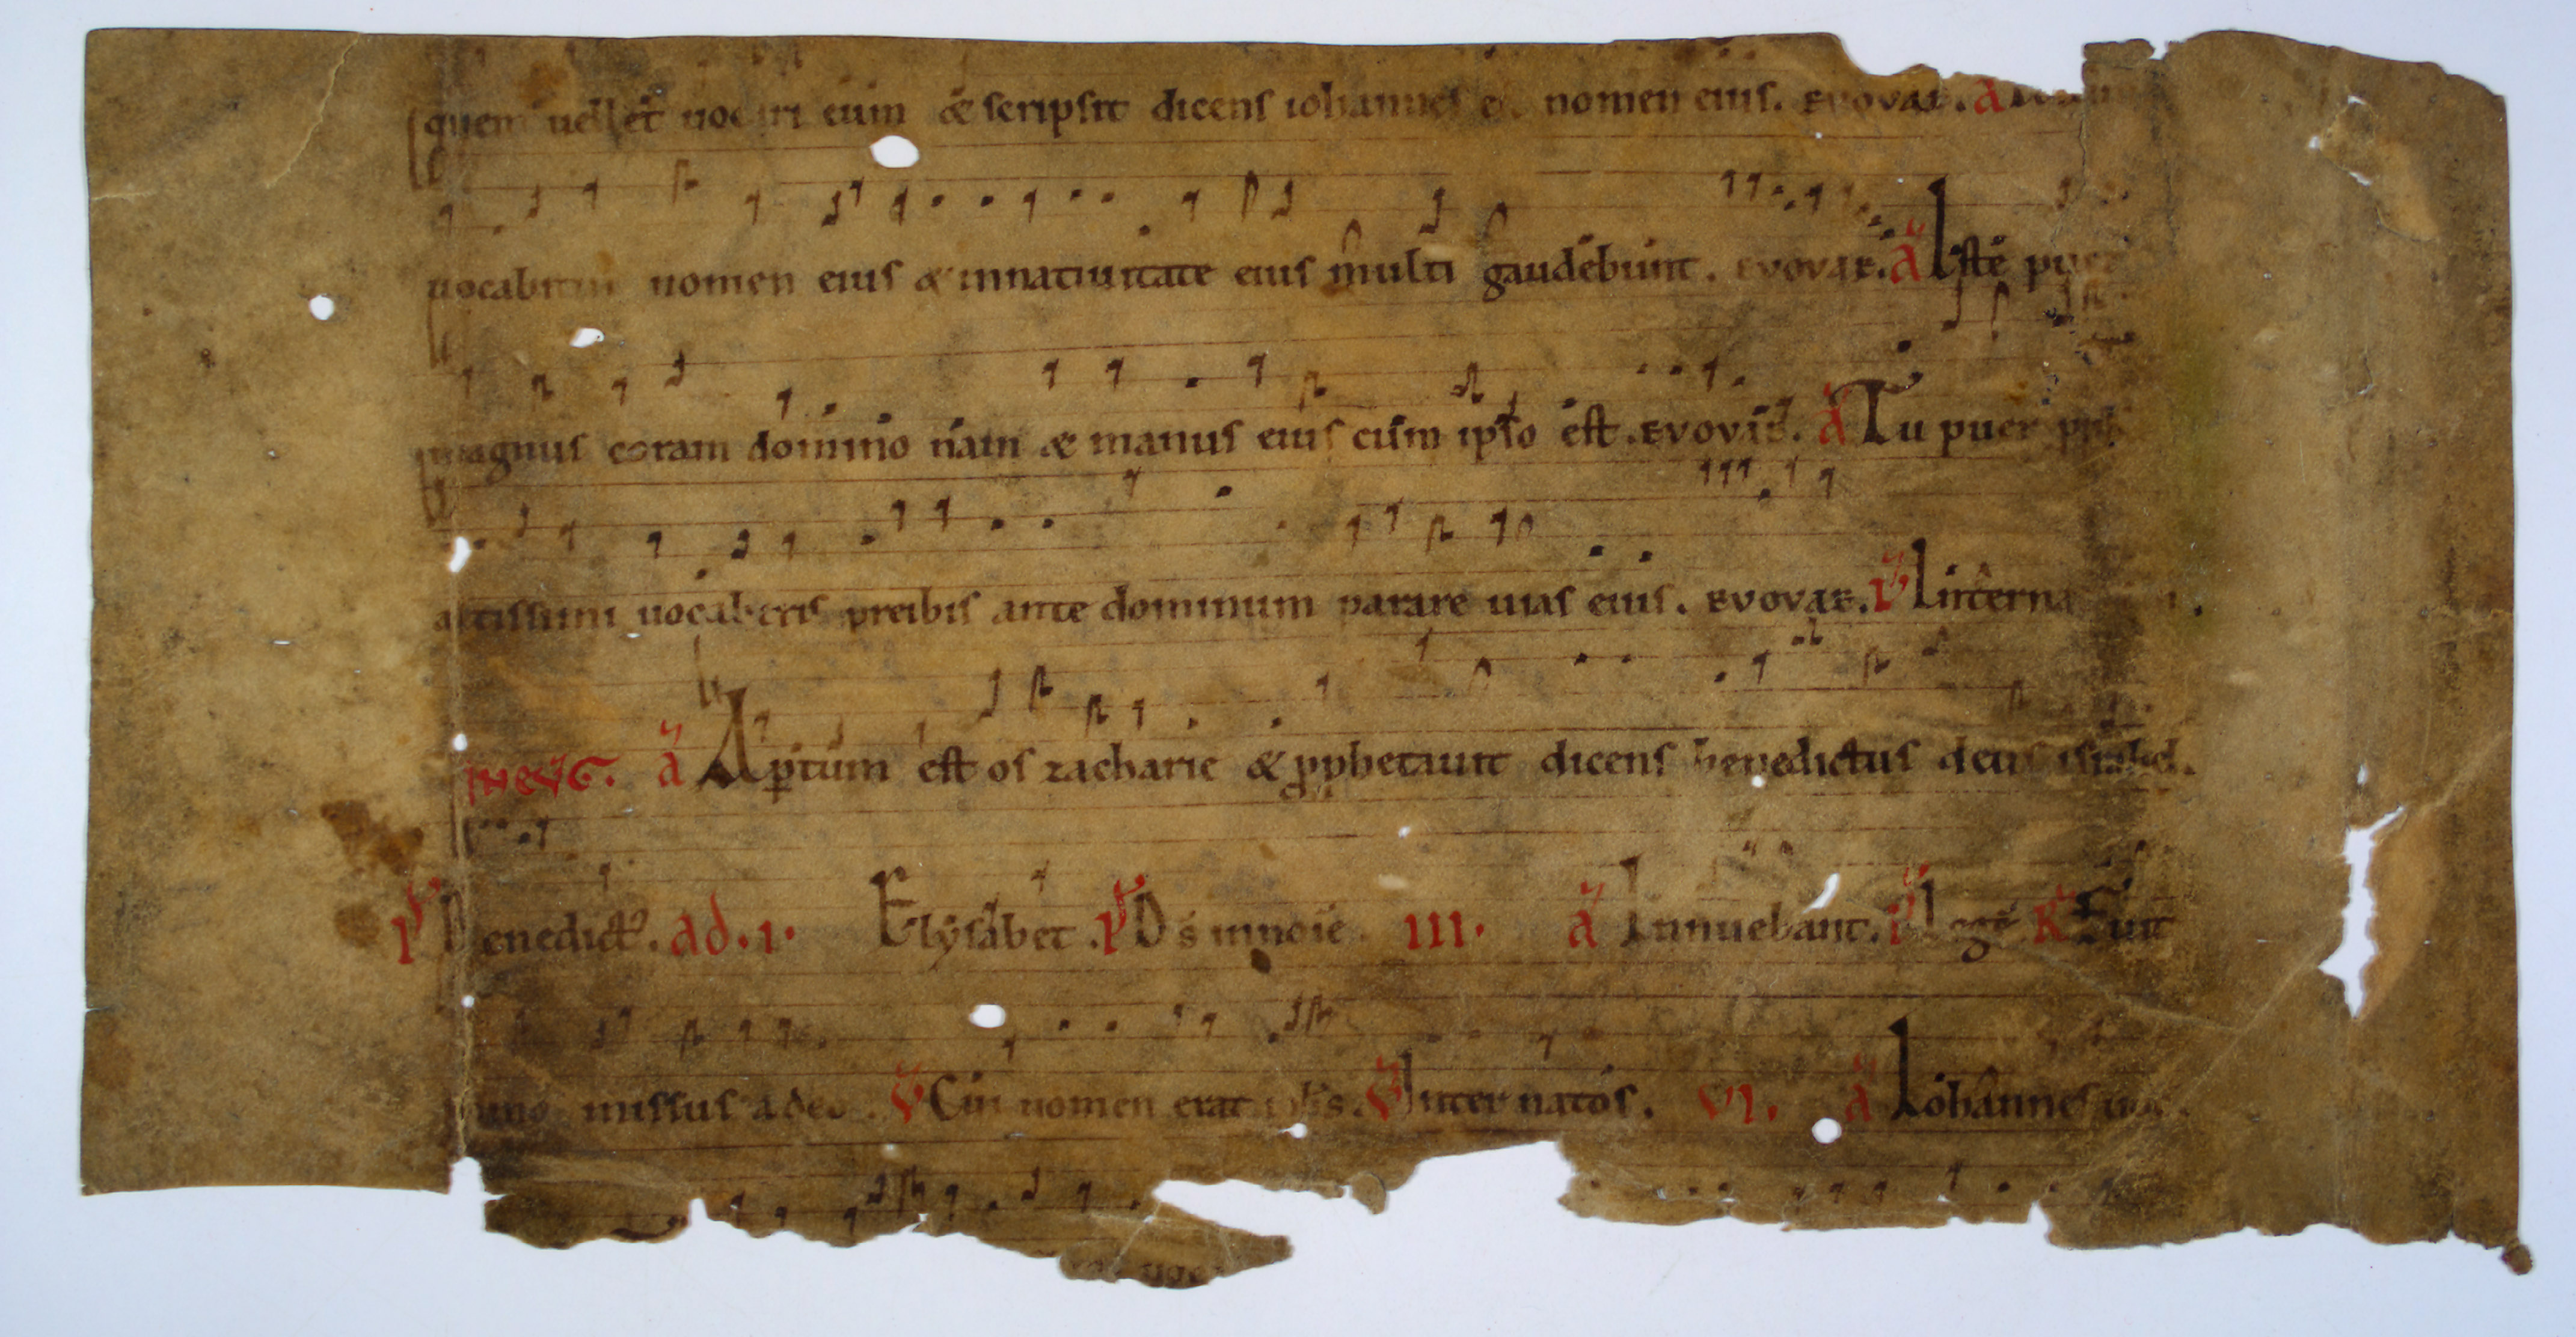 quem uellet uocari eum & scripsit dicens iohannes nomen eius. EVOVAE. A
uocabitur nomen eius & innatiuitate eius multi gaudebunt. EVOVAE. A Iste puer
magnus coram domino nam & manus eius cum ipso est. EVOVAE. A Tu puer
altissimi uocaberis preibis ante dominum parare uias eius. EVOVAE.
IN EVG. A Aptum est os zacharie & pphetauit dicens benedictus deus israhel.
Benedict. ad .I. Elysabet . Ds innoie . III. A Innuebant. R Fuit
missus a deo. V Cui nomen erat iohs. V Inter natos. VI. A Iohannes
uoc